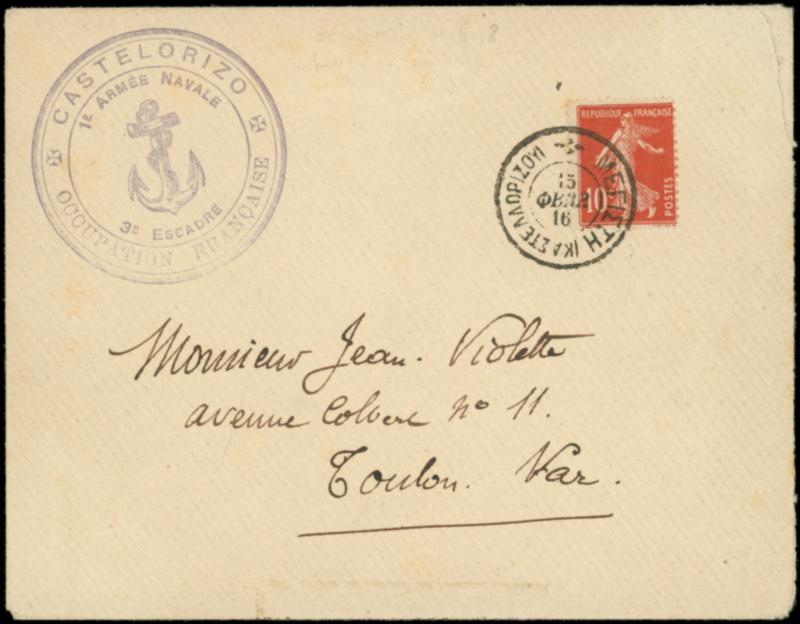 CASTELORIZO
1E ARMÉE NAVALE
3E ESCADRE
OCCUPATION FRANÇAISE
REPUBLIQUE FRANÇAISE
10
POSTES
ΜΕΓΙΣΤΗ (ΚΑΣΤΕΛΛΟΡΙΖΟΥ)
15
ΦΕΒΡ
16
Monsieur Jean Violette
avenue Colbert no 11.
Toulon. Var.